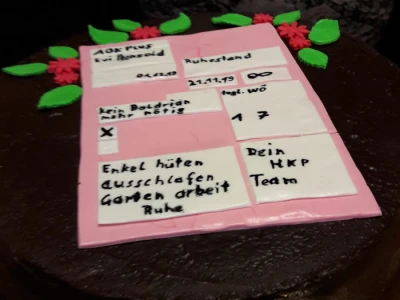 AOK Plus
Evi
01.12.19
Ruhestand
21.11.19 ∞
kein Baldrian
mehr nötig
X
tägl. WÖ
1 7
Enkel hüten
ausschlafen
Garten arbeit
Ruhe
Dein
HKP
Team